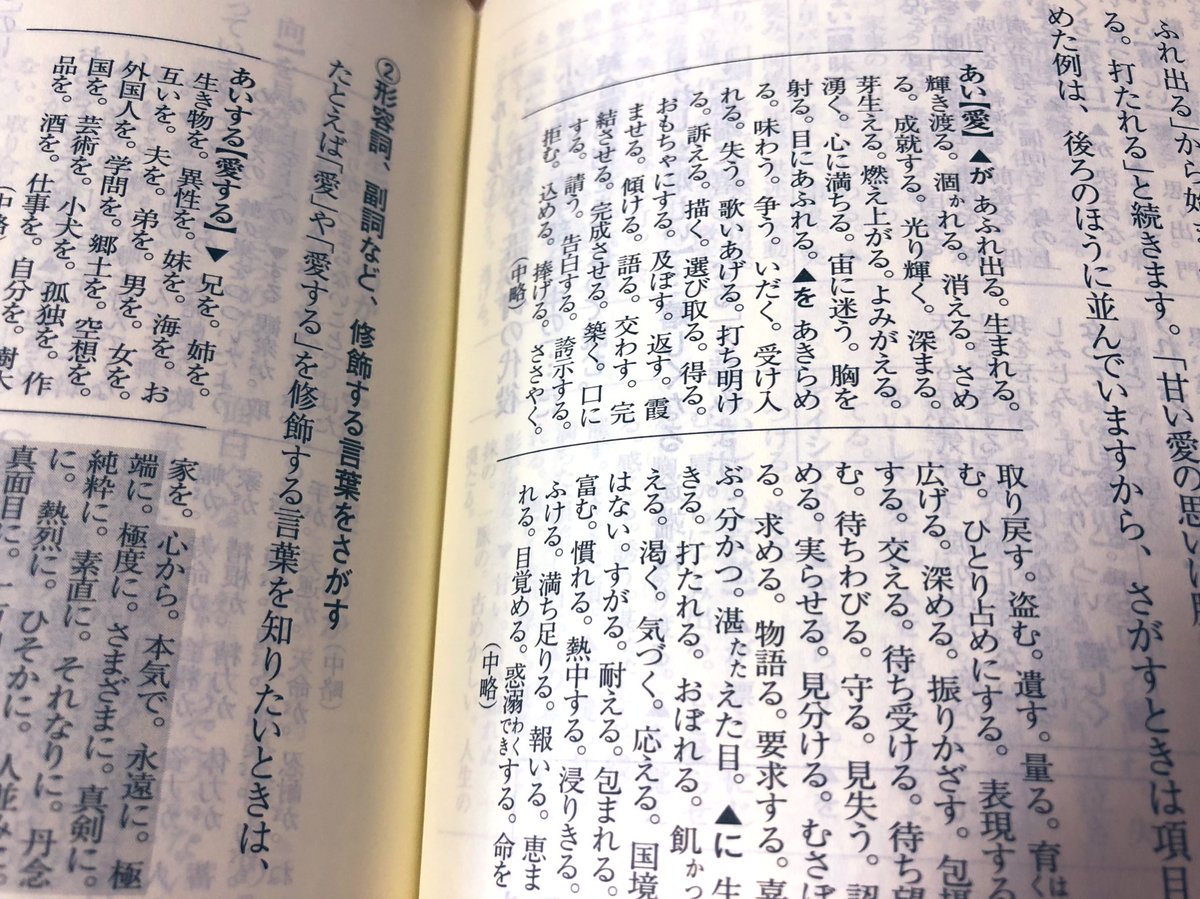 ふれ出る」から始ま
る。打たれる」と続きます。「甘い愛の思い
めた例は、後ろのほうに並んでいますから、さがすときは項目
あい【愛】▲が あふれ出る。生まれる。
輝き渡る。涸かれる。消える。さめ
る。成就する。光り輝く。深まる。
芽生える。燃え上がる。よみがえる。
湧く。心に満ちる。宙に迷う。胸を
射る。目にあふれる。▲を あきらめ
る。味わう。争う。いだく。受け入
れる。失う。歌いあげる。打ち明け
る。訴える。描く。選び取る。得る。
おもちゃにする。及ぼす。返す。霞
ませる。傾ける。語る。交わす。完
結させる。完成させる。築く。口に
する。請う。告白する。誇示する。
拒む。込める。捧げる。ささやく。
(中略)
取り戻す。盗む。遺す。量る。育は
む。ひとり占めにする。表現する
広げる。深める。振りかざす。包
する。交える。待ち受ける。待ち望
む。待ちわびる。守る。見失う。認
める。実らせる。見分ける。むさぼ
る。求める。物語る。要求する。
ぶ。分かつ。湛たたえた目。▲に 生
きる。打たれる。おぼれる。飢かつ
える。渇く。気づく。応える。国境
はない。すがる。耐える。包まれる。
富む。慣れる。熱中する。浸りきる。
ふける。満ち足りる。報いる。恵ま
れる。目覚める。惑溺わくできする。命を
(中略)
②形容詞、副詞など、修飾する言葉をさがす
たとえば「愛」や「愛する」を修飾する言葉を知りたいときは、
あいする【愛する】▼兄を。姉を。
生き物を。異性を。妹を。海を。お
互いを。夫を。弟を。男を。女を。
外国人を。学問を。郷土を。空想を。
国を。芸術を。小犬を。孤独を。作
品を。酒を。仕事を。自分を。樹木
(中略)
家を。心から。本気で。永遠に。極
端に。極度に。さまざまに。真剣に。
純粋に。素直に。それなりに。丹念
に。熱烈に。ひそかに。人並みに。
真面目に。